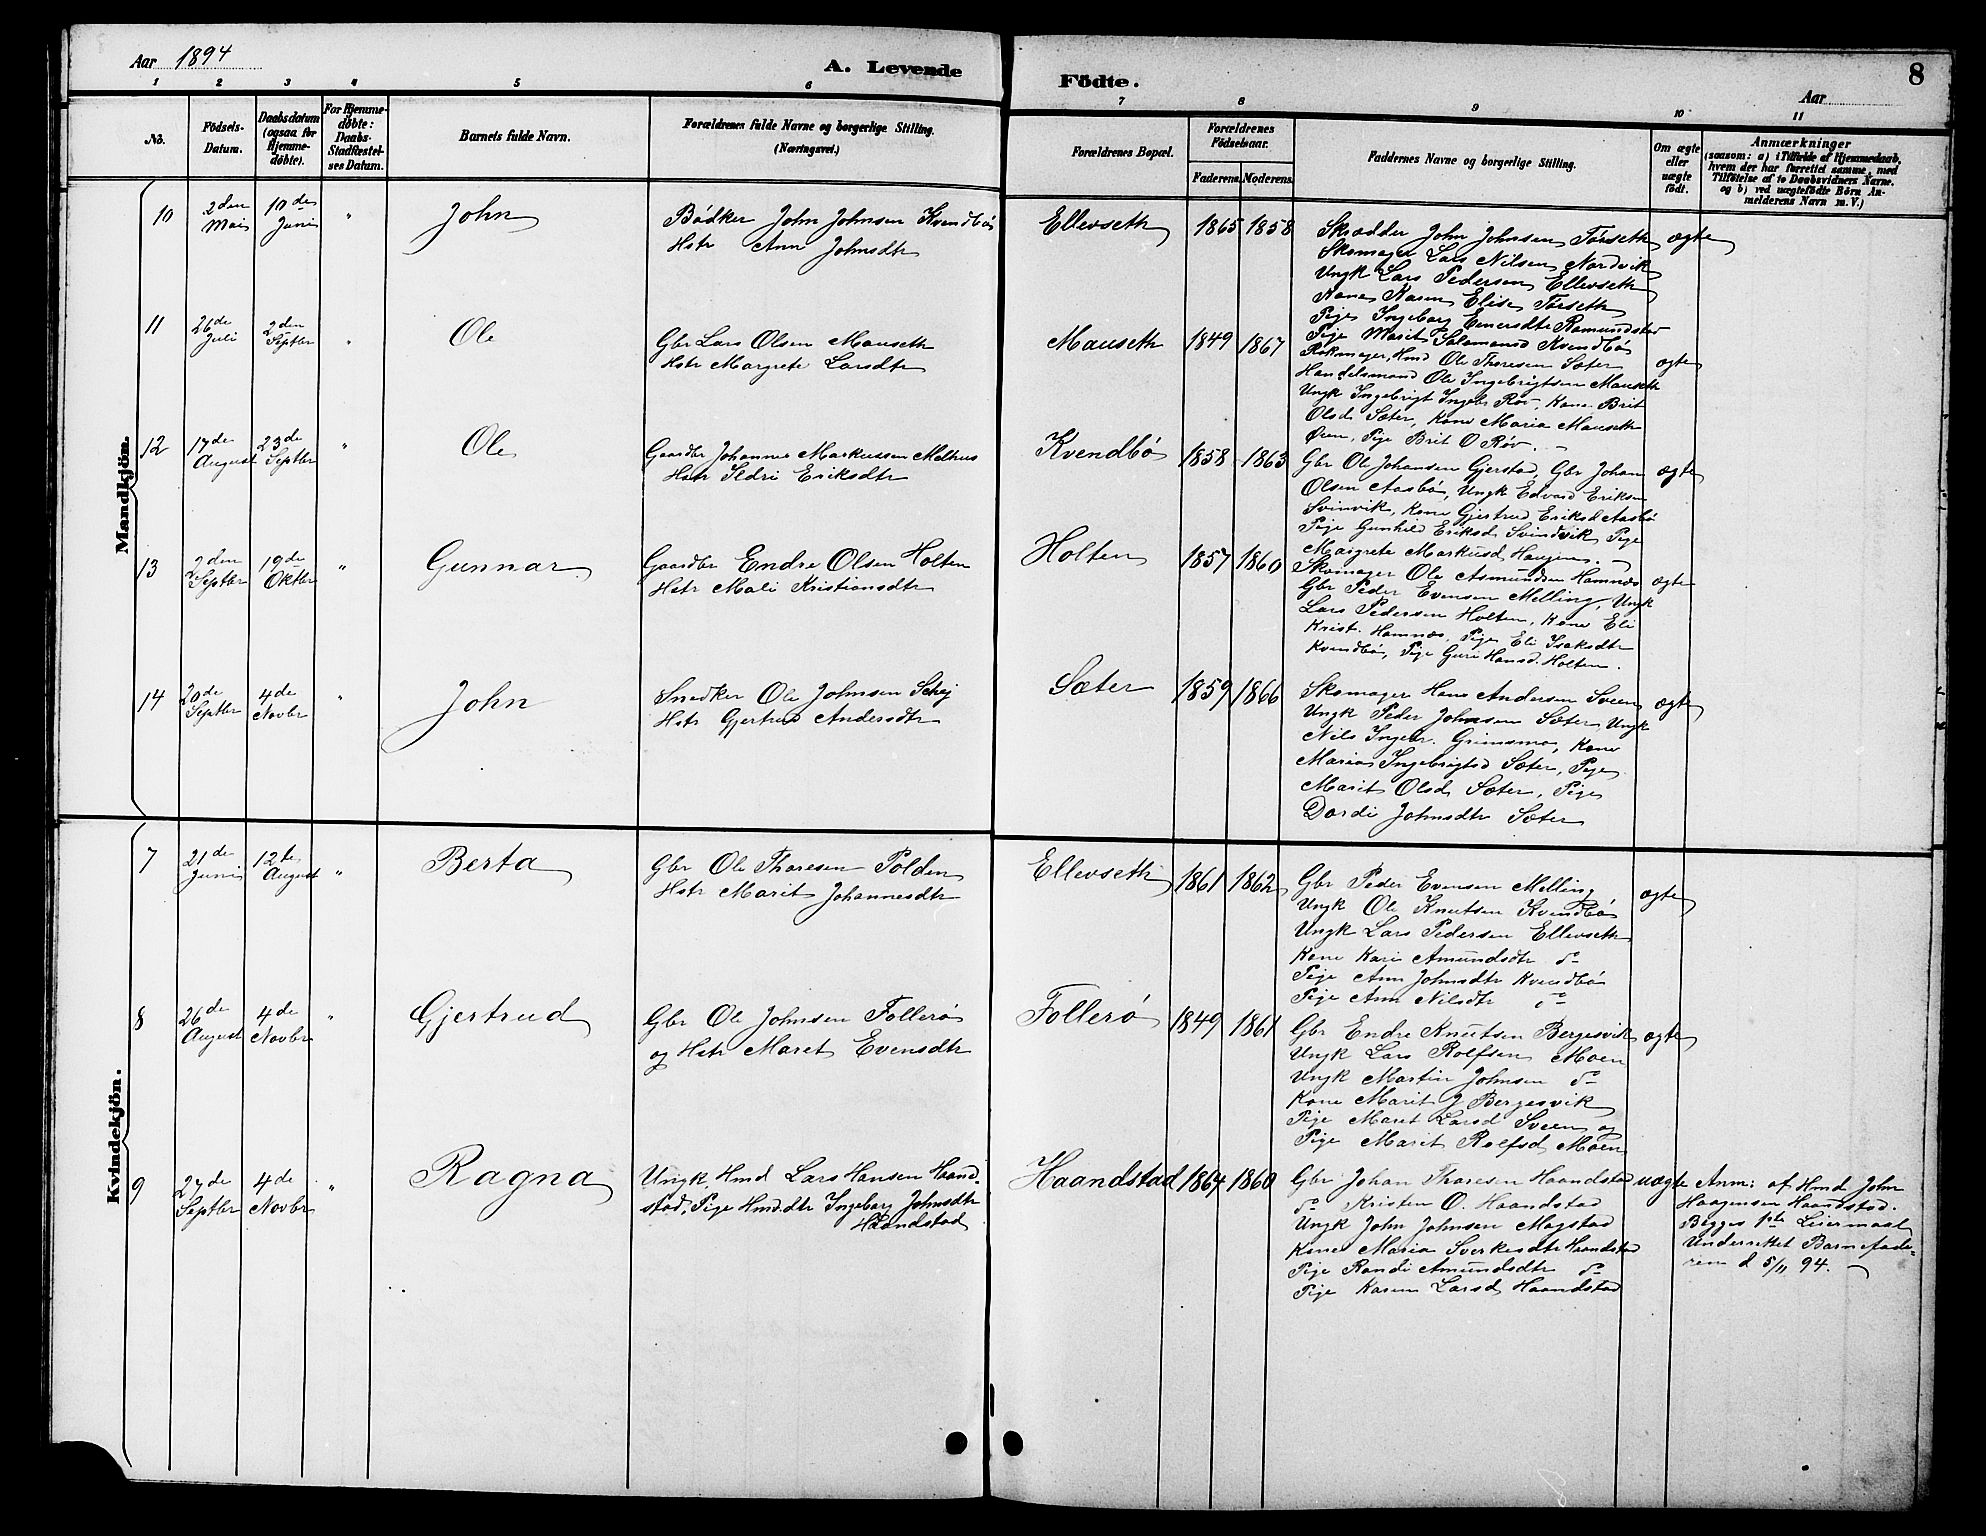 Aar 1894
A. Levende
Födte.
Aar
8
1 2 3 4 5 6 7 8 9 10 11
No.
Födsels-
Datum.
Daabsdatum
(ogsaa for
Hjemme-
döbte).
For Hjemme-
döbte:
Daabs-
Stadfæstel-
ses Datum.
Barnets fulde Navn.
Forældrenes fulde Navne og borgerlige Stilling.
(Næringsvei.)
Forældrenes Bopæl.
Forældrenes
Födselsaar.
Faderens. Moderens.
Faddernes Navne og borgerlige Stilling.
Om ægte
eller
uægte
födt.
Anmærkninger
(saasom: a) i Tilfælde af Hjemmedaab,
hvem der har forrettet samme, med
Tilföielse af to Daabsvidners Navne,
og b) ved uægtefödte Börn An-
melderens Navn m. V.)
Mandkjön.
10 2den Mai 10de Juni " John
Bödker John Johnsen Kvendbö
Hstr Ann Johnsdtr
Ellevseth 1865 1858
Skrædder John Johnsen Törseth ægte
Skomager Lars Nilsen Nordvik
Ungk Lars Pedersen Ellevseth
Kone Karen Elise Törseth
Pige Ingeborg Einersdtr Ramundstad
Pige Marit Salamonsd Kvendbö
11 26de Juli 2den Septbr " Ole
Gbr Lars Olsen Mauseth
Hstr Margrete Larsdtr
Mauseth 1849 1867
Rokmager, Hmd Ole Thoresen Sæter ægte
Handelsmand Ole Ingebrigtsen Mauseth
Ungk Ingebrigt Ingebr Röv, Kone Brit
Olsd Sæter, Kone Maria Mauseth
Öien, Pige Brit O Röv.
12 17de August 23de Septbr " Ole
Gaardbr Johannes Markussen Melhus
Hstr Sldri Eriksdtr
Kvendbö 1858 1863
Gbr Ole Johansen Gjerstad, Gbr Johan ægte
Olsen Aasbö, Ungk Edvard Eriksen
Svinvik, Kone Gjertrud Eriksd Aasbö
Pige Gunhild Eriksd Svindvik Pige
Margrete Markusd Haugen.
13 2den Septbr 19de Oktbr " Gunnar
Gaardbr Endre Olsen Holten
Hstr Mali Kristiansdtr
Holten 1857 1860
Skomager Ole Asmundsen Hamnæs ægte
Gbr Peder Evensen Melling, Ungk
Lars Pedersen Holten, Kone Eli
Krist. Hamnæs, Pige Eli Isaksdtr
Kvendbö, Pige Guri Hansd. Holten.
14 20de Septbr 4de Novbr " John
Snedker Ole Johnsen Schej
Hstr Gjertrud Andersdtr
Sæter 1859 1866
Skomager Hans Andersen Sveen ægte
Ungk Peder Johnsen Sæter, Ungk
Nils Ingebr. Grimsmo, Kone
Maria Ingebrigtsd Sæter, Pige
Marit Olsd Sæter, Pige
Dordi Johnsdtr Sæter
Kvindekjön.
7 21de Juni 12te August " Berta
Gbr Ole Thoresen Polden
Hstr Marit Johannesdtr
Ellevseth 1861 1862
Gbr Peder Evensen Melling ægte
Ungk Ole Knutsen Kvendbö
Ungk Lars Pedersen Ellevseth
Kone Kari Amundsdtr do
Pige Ann Johnsdtr Kvendbö
Pige Ann Nilsdtr do
8 26de August 4de Novbr " Gjertrud
Gbr Ole Johnsen Follerö
og Hstr Maret Evensdtr
Follerö 1849 1861
Gbr Endre Knutsen Bergesvik ægte
Ungk Lars Rolfsen Moen
Ungk Martin Johnsen do
Kone Marit J Bergesvik
Pige Maret Larsd Sveen og
Pige Marit Rolfsd Moen
9 27de Septbr 4de Novbr " Ragna
Ungk, Hmd Lars Hansen Haand-
stad, Pige Hmd.dtr Ingeborg Johnsdtr
Haandstad
Haandstad 1864 1860
Gbr Johan Thoresen Haandstad uægte
do Kristen O. Haandstad
Ungk John Johnsen Mogstad
Kone Maria Sverkesdtr Haandstad
Pige Randi Amundsdtr do
Pige Karen Larsd Haandstad
Anm: af Hmd John
Haagensen Haandstad.
Begges 1ste Leiermaal
Underrettet Barnefade-
ren d 5/11 94.